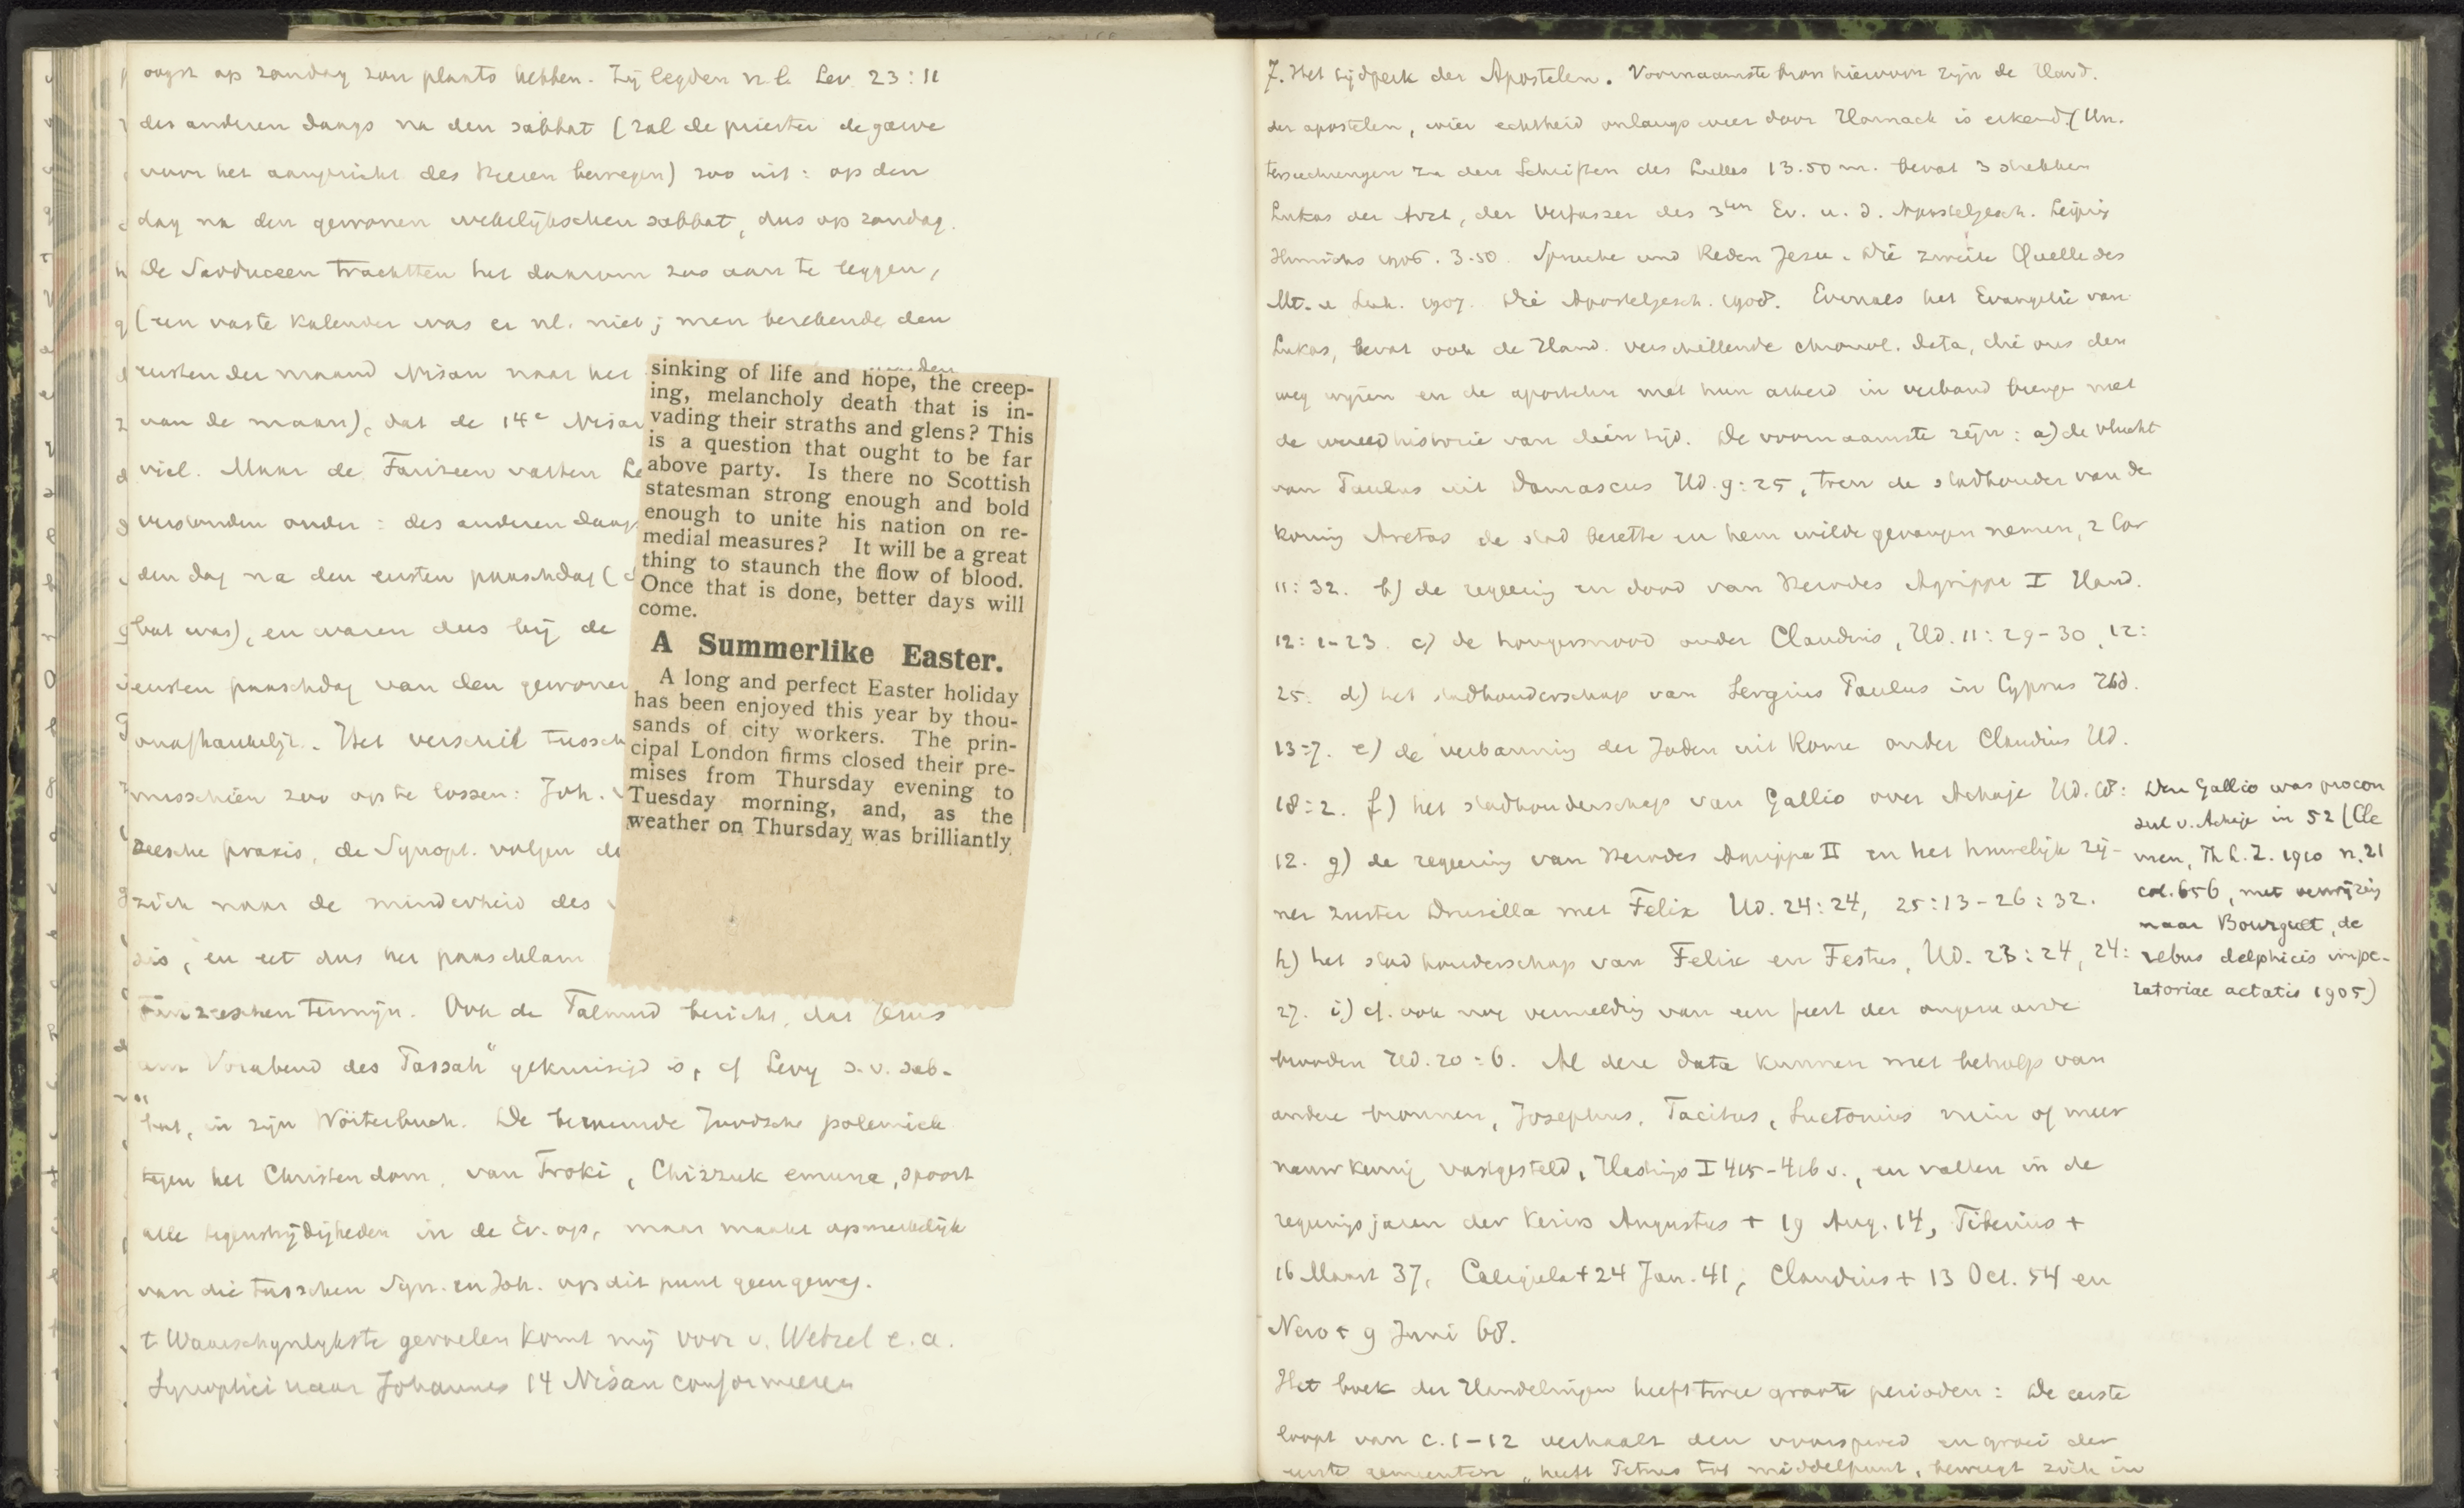 oogst op zondag zou plaats hebben. Zij legden n.l. Lev. 23:11
des anderen daags na den sabbat (zal de priester de garve
voor het aangezicht des Heeren bewegen) zoo uit: op den
dag na den gewonen wekelijkschen sabbat, dus op zondag.
De Sadduceen trachtten het daarom zoo aan te leggen,
(een vaste kalender was er nl. niet; men berekende den
eersten der maand Nisan naar het
van de maan), dat de 14e Nisan
viel. Maar de Farizeen vatten
verstonden onder: des anderen daags
den dag na den eersten paaschdag (
bat was), en waren dus bij de
eersten paaschdag van den gewonen
onafhankelijk. Het verschil tussch
misschien zoo op te lossen: Joh.
zeesche praxis, de Synopt. volgen
zich naar de minderheid des
en eet dus het paaschlam
Farizeeschen termijn. Ook de Talmud bericht, dat Jezus
am Vorabend des Passah" gekruisigd is, cf Levy s.v. sab-
bat, in zijn Wörterbuch. De beroemde Joodsche polemiek
tegen het Christendom, van Troki, Chizzuk emuna, spoort
alle tegenstrijdigheden in de Ev. op, maar maakt opmerkelijk
van die tusschen Syn. en Joh. op dit punt geen gewag.
't Waarschynlykste gevoelen komt mij voor v. Wetzel e.a.
Synoptici naar Johannes 14 Nisan conformeeren
sinking of life and hope, the creep-
ing, melancholy death that is in-
vading their straths and glens? This
is a question that ought to be far
above party. Is there no Scottish
statesman strong enough and bold
enough to unite his nation on re-
medial measures? It will be a great
thing to staunch the flow of blood.
Once that is done, better days will
come.
A Summerlike Easter.
A long and perfect Easter holiday
has been enjoyed this year by thou-
sands of city workers. The prin-
cipal London firms closed their pre-
mises from Thursday evening to
Tuesday morning, and, as the
weather on Thursday was brilliantly
7. Het tijdperk der Apostelen. Voornaamste bron hiervoor zijn de Hand.
der apostelen, wier echtheid onlangs weer door Harnack is erkend. (Un-
tersuchungen zu den Schriften des Lukas 13.50 m. bevat 3 stukken
Lukas der Arzt, der Verfasser des 3ten Ev. u. d. Apostelgesch. Leipzig
Hinrichs 1906. 3.50. Sprüche und Reden Jesu. Die zweite Quelle des
Mt. u Luk. 1907. Die Apostelgesch. 1908. Evenals het Evangelie van
Lukas, bevat ook de Hand. verschillende chronol. data, die ons den
weg wijzen en de apostelen met hun arbeid in verband brengen met
de wereldhistorie van dien tijd. De voornaamste zijn: a) de vlucht
van Paulus uit Damascus Hd. 9:25, toen de stadhouder van de
koning Aretas de stad bezette en hem wilde gevangen nemen, 2 Cor
11:32. b) de regeering en dood van Herodes Agrippa I Hand.
12:1-23. c) de hongersnood onder Claudius, Hd. 11:29-30, 12:
25. d) het stadhouderschap van Sergius Paulus in Cyprus Hd.
13:7. e) de verbanning der Joden uit Rome onder Claudius Hd.
18:2. f) het stadhouderschap van Gallio over Achaje Hd. 18:
12. g) de regeering van Herodes Agrippa II en het huwelijk zij-
ner zuster Drusilla met Felix Hd. 24:24, 25:13-26:32.
h) het stadhouderschap van Felix en Festus, Hd. 23:24, 24:
27. i) cf. ook nog vermelding van een feest der ongezuurde
brooden Hd. 20:6. Al deze data kunnen met behulp van
andere bronnen, Josephus, Tacitus, Suetonius min of meer
nauwkeurig vastgesteld, Hastings I 415-416 v., en vallen in de
regeeringsjaren der keizers Augustus + 19 Aug. 14, Tiberius +
16 Maart 37, Caligula + 24 Jan. 41, Claudius + 13 Oct. 54 en
Nero + 9 Juni 68.
Het boek der Handelingen heeft twee groote perioden: De eerste
loopt van c. 1-12 verhaalt den voorspoed en groei der
eerste gemeenten, heeft Petrus tot middelpunt, beweegt zich in
Den Gallio was procon
sul v. Achaje in 52 (Cle
men, Th L. Z. 1910 n. 21
col. 656, met verwijzing
naar Bourguet, de
rebus delphicis impe-
ratoriae aetatis 1905)